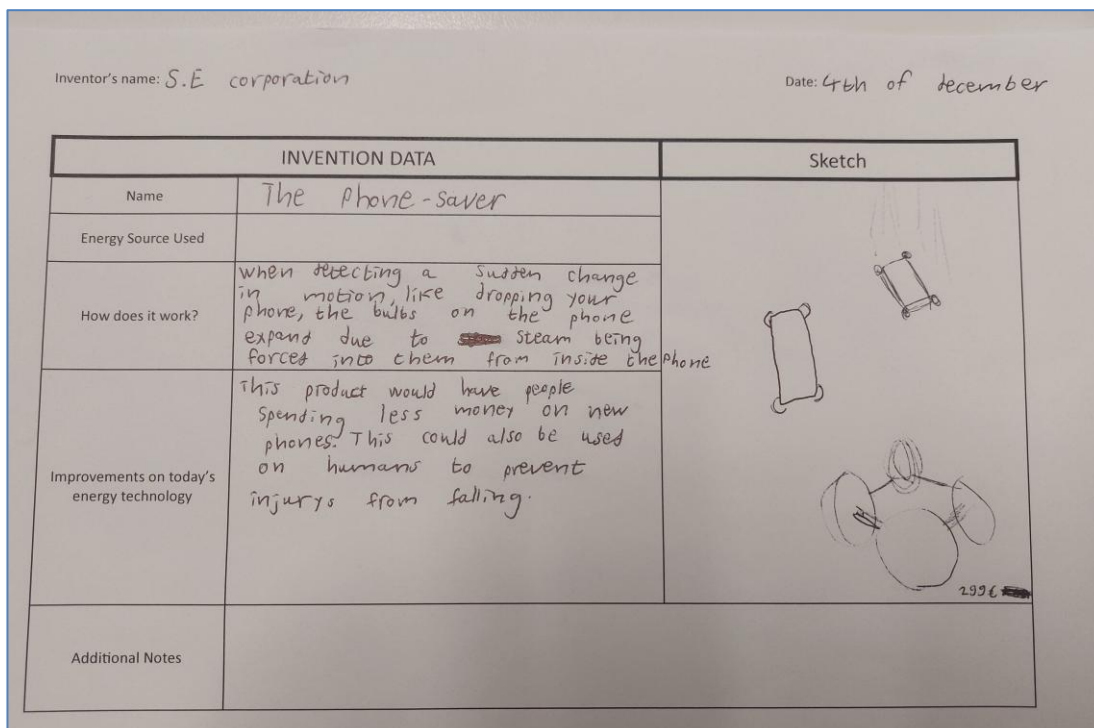 Inventor's name: S.E corporation
Date: 4th of december
INVENTION DATA
Sketch
Name
The phone-saver
Energy Source Used
How does it work?
when detecting a sudden change
in motion, like dropping your
phone, the bulbs on the phone
expand due to steam being
forced into them from inside the phone
Improvements on today's
energy technology
This product would have people
spending less money on new
phones. This could also be used
on humans to prevent
injurys from falling.
299€
Additional Notes